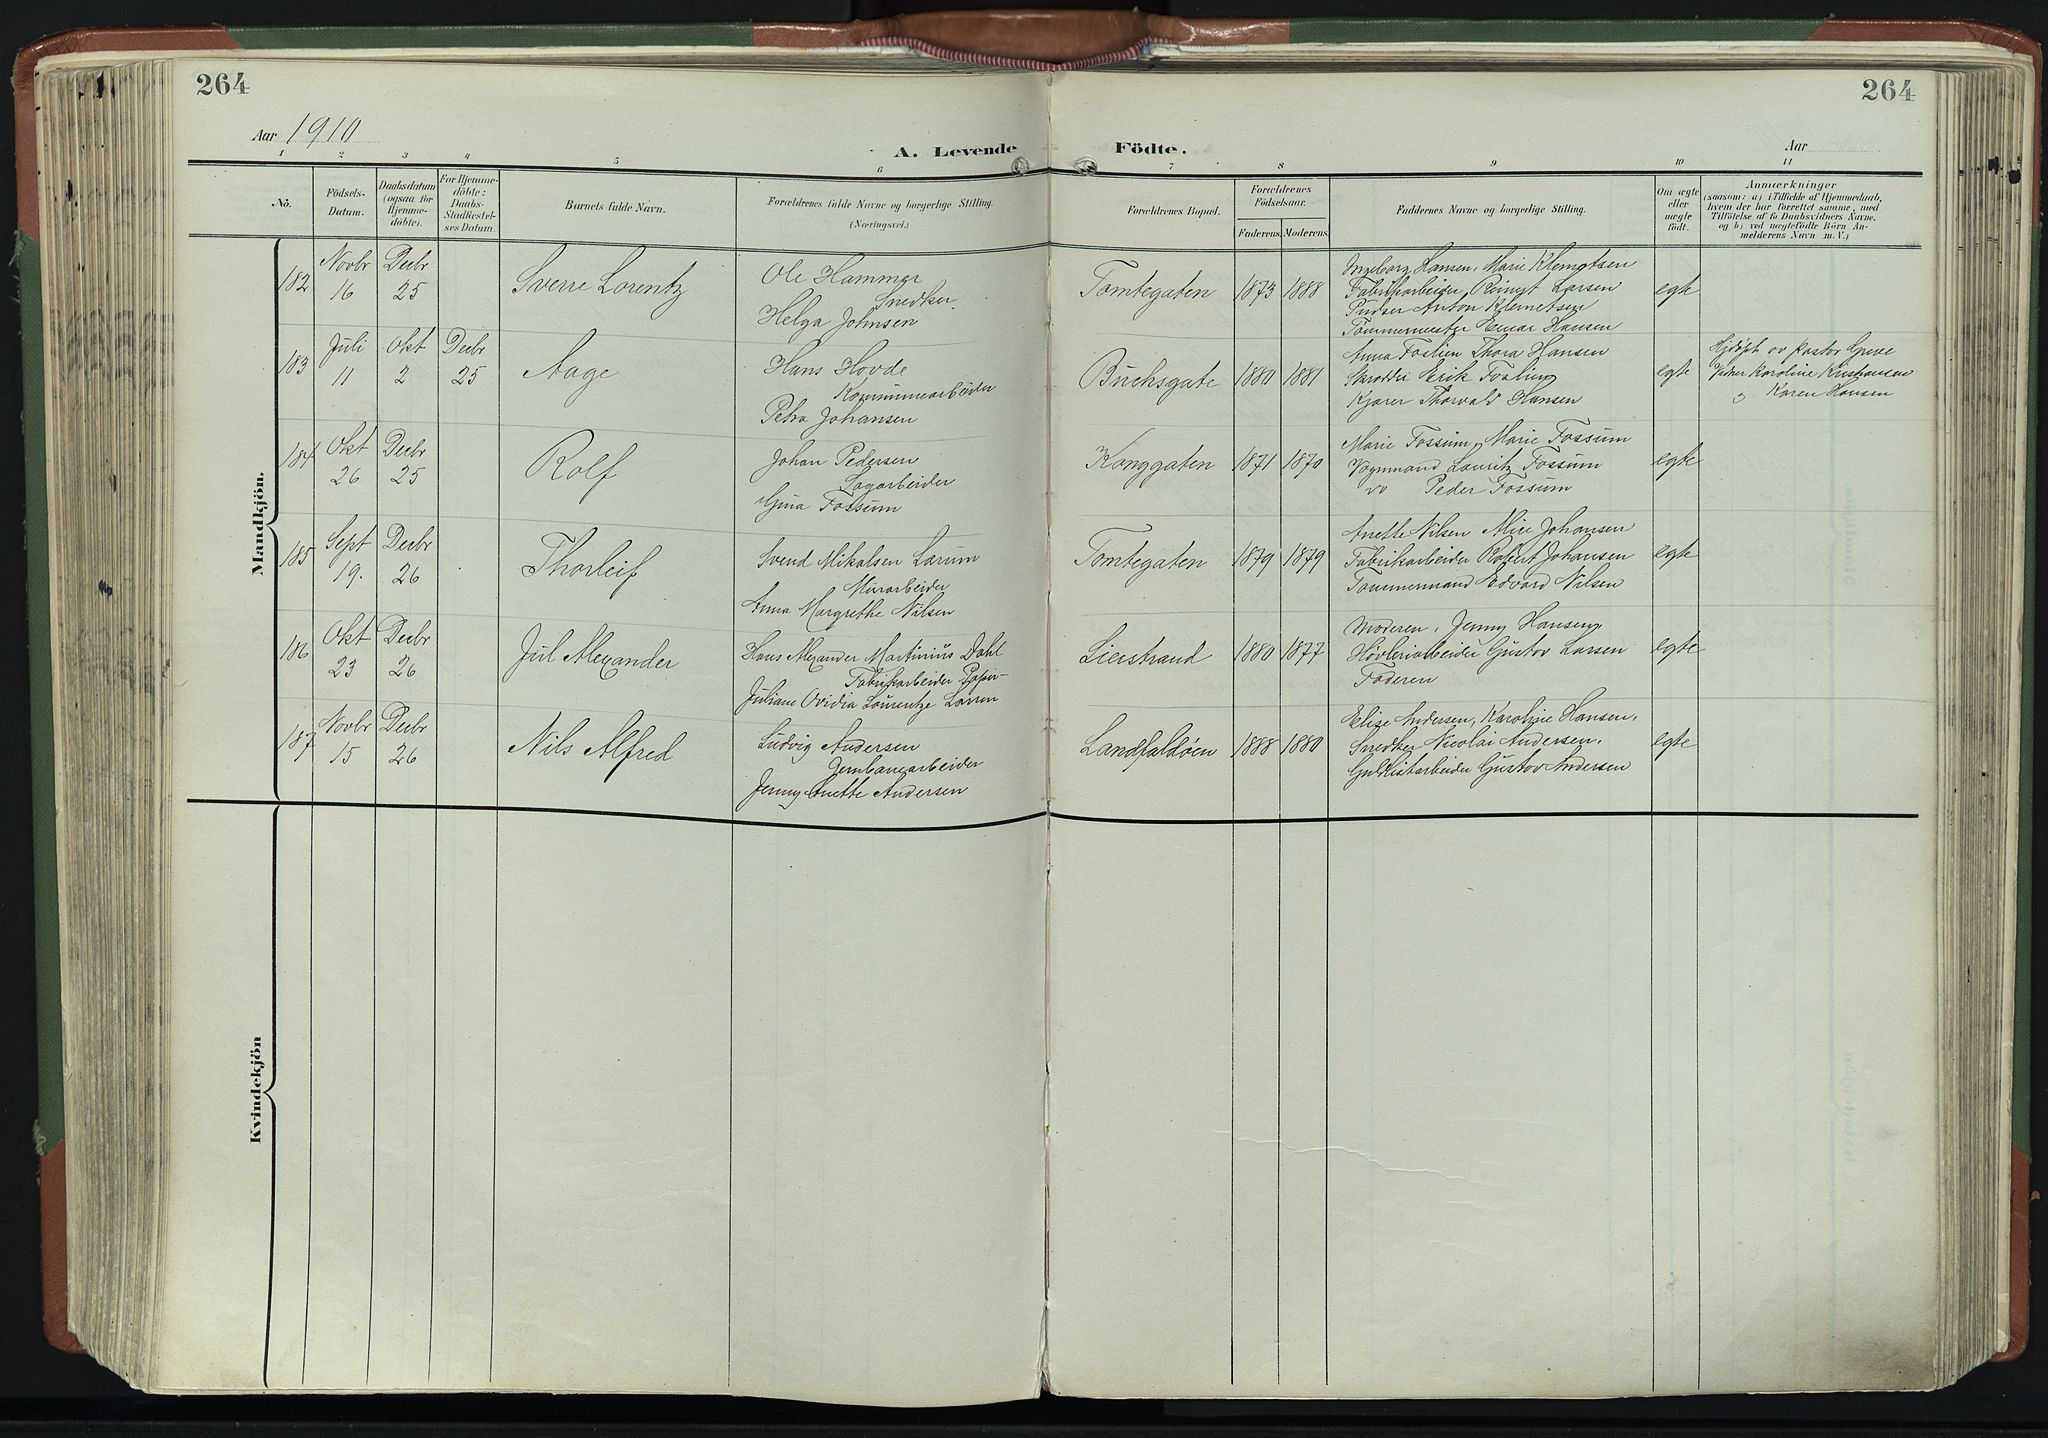 264
264
Aar 1910
A. Levende Födte.
Aar
1 2 3 4 5 6 7 8 9 10 11
No.
Födsels-Datum.
Daabsdatum (ogsaa for Hjemmedöbte).
For Hjemmedöbte: Daabs-Stadfæstelses Datum.
Barnets fulde Navn.
Forældrenes fulde Navne og borgerlige Stilling.
(Næringsvei.)
Forældrenes Bopæl.
Forældrenes Födselsaar.
Faderens. Moderens.
Faddernes Navne og borgerlige Stilling.
Om ægte eller uægte født.
Anmærkninger
(saasom: a) i Tilfælde af Hjemmedaab,
hvem der har forrettet samme, med
Tilföielse af to Daabsvidners Navne.
og b) ved uægtefödte Börn An-
melderens Navn m. V.)
Mandkjön.
182
Novbr 16
Decbr 25
Sverre Lorentz
Ole Hammer
Snedker
Helga Johnsen
Tomtegaten
1873 1888
Ingeborg Hansen, Marie Klemetsen
Fabrikarbeider Reinert Larsen
Pudser Anton Klemetsen
Tömmermester Einar Hansen
egte
183
Juli 11
Okt 2
Decbr 25
Aage
Hans Hovde
Kommunearbeider
Petra Johansen
Buchsgate
1880 1881
Anna Foslien Thora Hansen
Skrædder Erik Foslien
Kjører Thorvald Hansen
egte
Hjdøpt av Pastor Greve
Vidner Karoline Kristiansen
" Karen Hansen
184
Okt 26
Decbr 25
Rolf
Johan Pedersen
Sagarbeider
Gina Fossum
Konggaten
1871 1870
Marie Fossum, Marie Fossum
Vognmand Lauritz Fossum
do Peder Fossum
egte
185
Sept 19.
Decbr 26
Thorleif
Svend Mikalsen Larum
Murarbeider
Anna Margrethe Nilsen
Tomtegaten
1879 1879
Anette Nilsen Alice Johansen
Fabrikarbeider Robert Johansen
Tömmermand Edvard Nilsen
egte
186
Okt 23
Decbr 26
Jul Alexander
Hans Alexander Martinius Dahl
Fabrikarbeider Papir-
Juliane Ovidia Laurentze Larsen
Lierstrand
1880 1877
Moderen, Jenny Hansen,
Høvleriarbeider Gustav Larsen
Faderen
egte
187
Novbr 15
Decbr 26
Nils Alfred
Ludvig Andersen
Jernbanearbeider
Jenny Anette Andersen
Landfaldøen
1888 1880
Elise Andersen, Karoline Hansen,
Snedker Nicolai Andersen,
Guldlistarbeider Gustav Andersen
egte
Kvindekjön